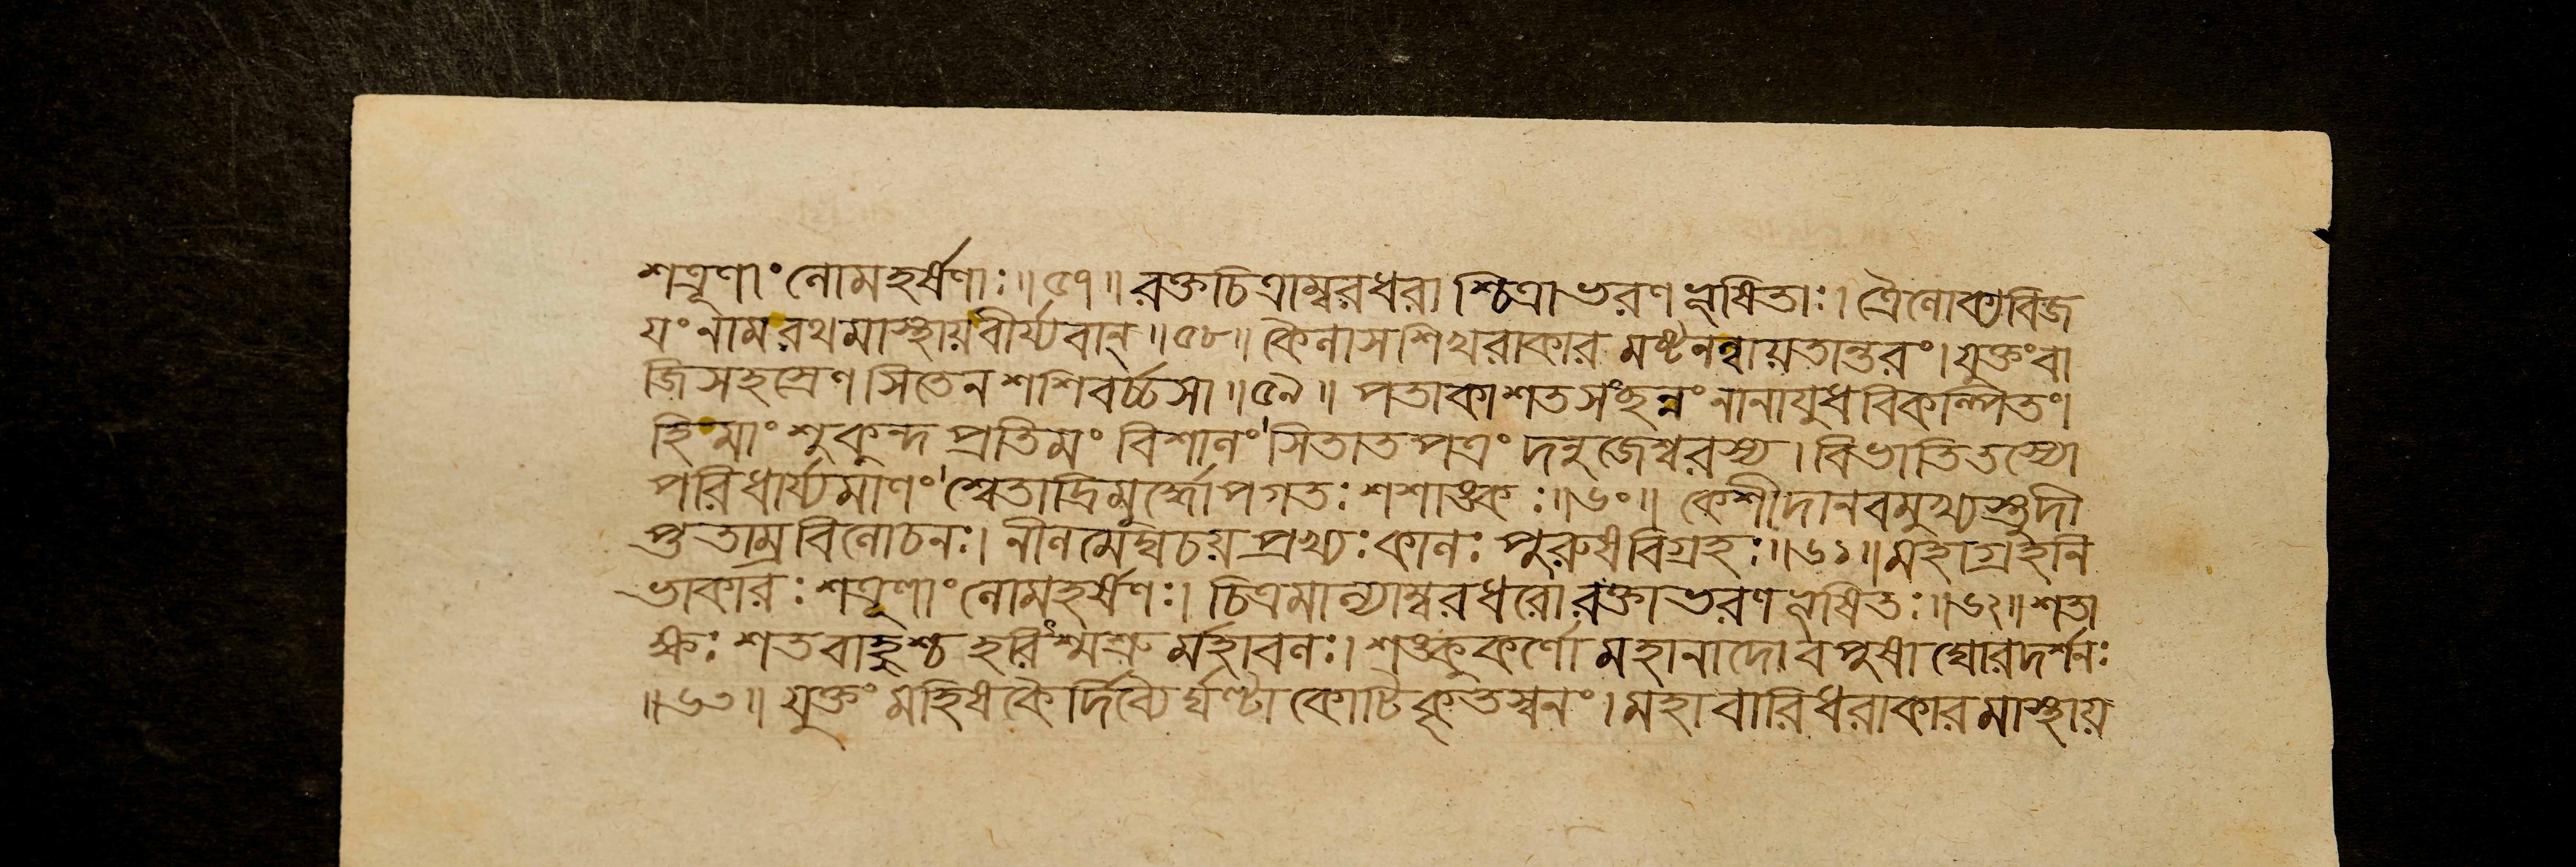 শত্রূণাং লোমহর্ষণাঃ॥৫৭॥ রক্তচিত্রাম্বরধরা শ্চিত্রাভরণভূষিতাঃ। ত্রৈলোক্যবিজ
যং নাম রথমাস্থায় বীর্য্যবান্॥৫৮॥ কৈলাসশিখরাকার মষ্টনল্বায়তান্তরং। যুক্তং বা
জিসহস্রেণ সিতেন শশিবর্চ্চসা॥৫৯॥ পতাকাশতসংছন্নং নানাযুধবিকল্পিতং।
হিমাংশুকুন্দপ্রতিমং বিশালং সিতাতপত্রং দনুজেশ্বরস্য। বিভাতি তস্যো
পরিধার্য্যমাণং শ্বেতাদ্রিমূর্দ্ধোপগতঃ শশাঙ্কঃ॥৬০॥ কেশী দানবমুখ্যস্তুদী
প্ততাম্রবিলোচনঃ। নীলমেঘচয়প্রখ্যঃ কালঃ পুরুষবিগ্রহঃ॥৬১॥ মহাগ্রহনি
ভাকারঃ শত্রূণাং লোমহর্ষণঃ। চিত্রমাল্যাম্বরধরো রক্তাভরণভূষিতঃ॥৬২॥ শতা
ক্ষঃ শতবাহুশ্চ হরিশ্মশ্রু র্মহাবলঃ। শঙ্কুকর্ণো মহানাদো বপুষা ঘোরদর্শনঃ
॥৬৩॥ যুক্তং মহিষকৈর্দিব্যৈ র্ঘণ্টাকোটিকৃতস্বনং। মহাবারিধরাকারমাস্থায়